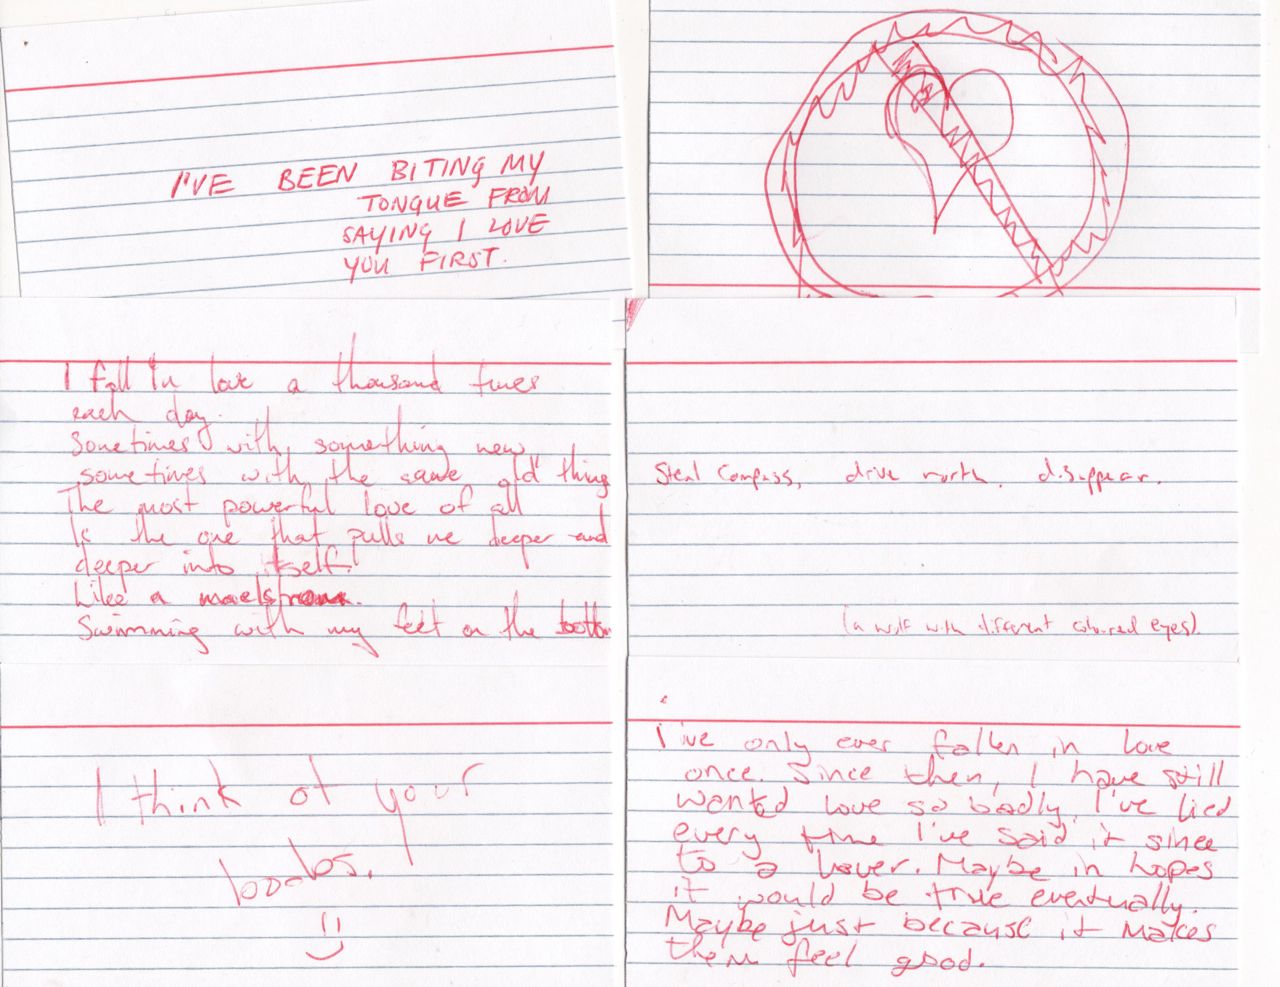 I'VE BEEN BITING MY
TONGUE FROM
SAYING I LOVE
YOU FIRST.
I fall in love a thousand times
each day.
Sometimes with something new
sometimes with the same old thing
The most powerful love of all
Is the one that pulls me deeper and
deeper into itself.
Like a maelstrom.
Swimming with my feet on the bottom
Steal compass, drive north, disappear.
(a wolf with different coloured eyes).
I think of your
boobs.
:)
I've only ever fallen in love
once. Since then, I have still
wanted love so badly, I've lied
every time I've said it since
to a lover. Maybe in hopes
it would be true eventually.
Maybe just because it makes
them feel good.